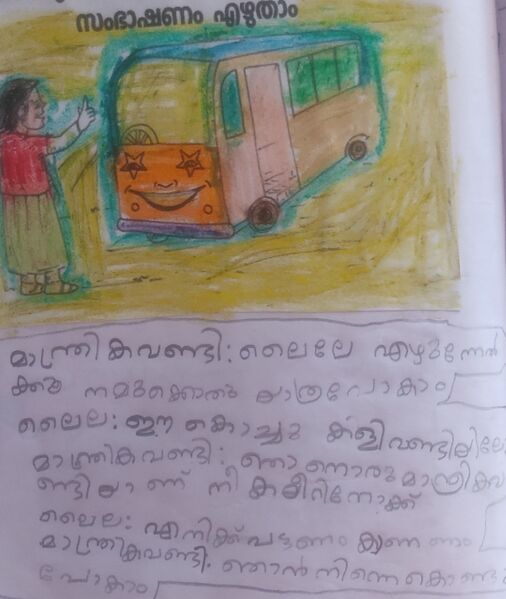 സംഭാഷണം എഴുതാം
മാന്ത്രികവണ്ടി: ലൈലേ എഴുന്നേൽ
ക്കൂ നമുക്കൊരു യാത്രപോകാം
ലൈല: ഈ കൊച്ചു കളിവണ്ടിയിലോ
മാന്ത്രികവണ്ടി: ഞാനൊരു മാന്ത്രികവ
ണ്ടിയാണ് നീ കയറിനോക്ക്
ലൈല: എനിക്ക് പട്ടണം കാണണം
മാന്ത്രികവണ്ടി: ഞാൻ നിന്നെ കൊണ്ടു
പോകാം